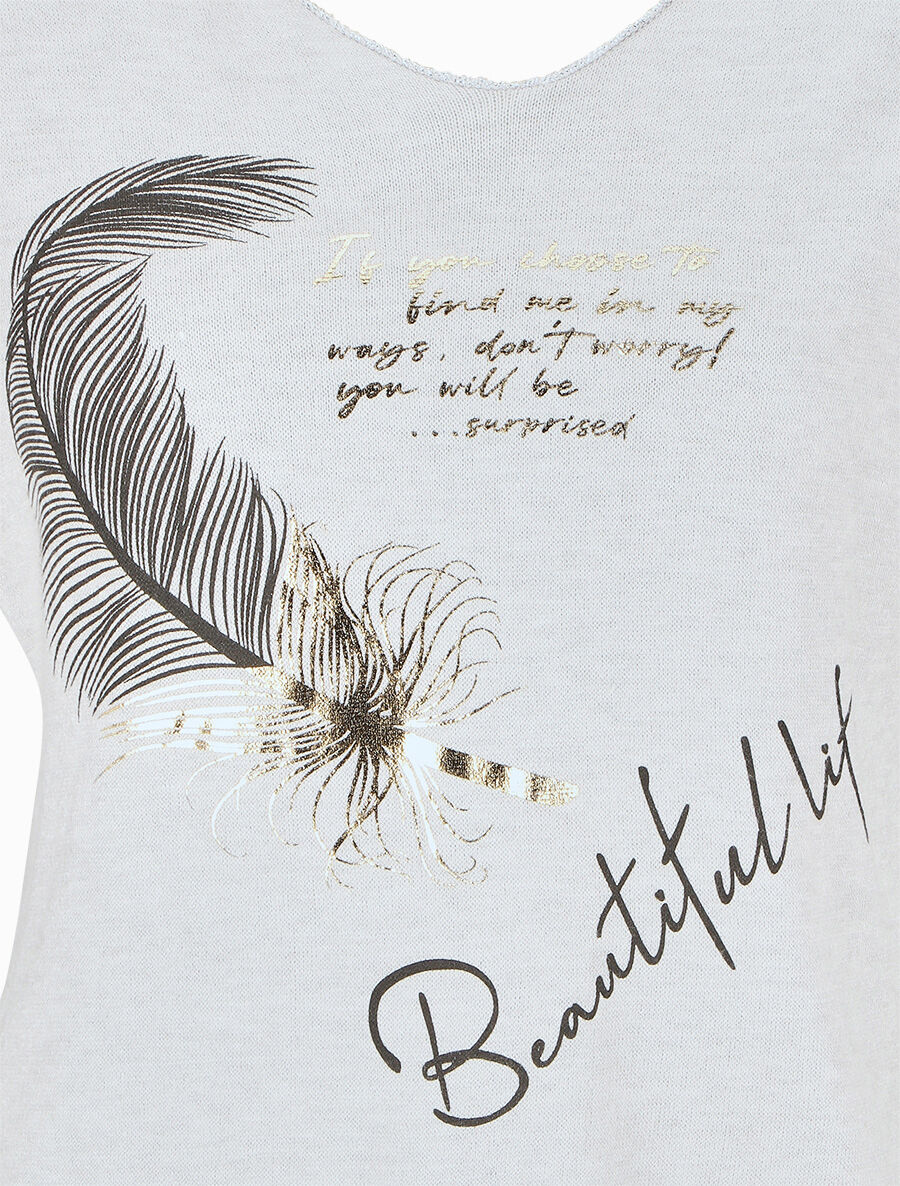 If you choose to
find me in my
ways, don't worry!
you will be
...surprised
Beautiful lit